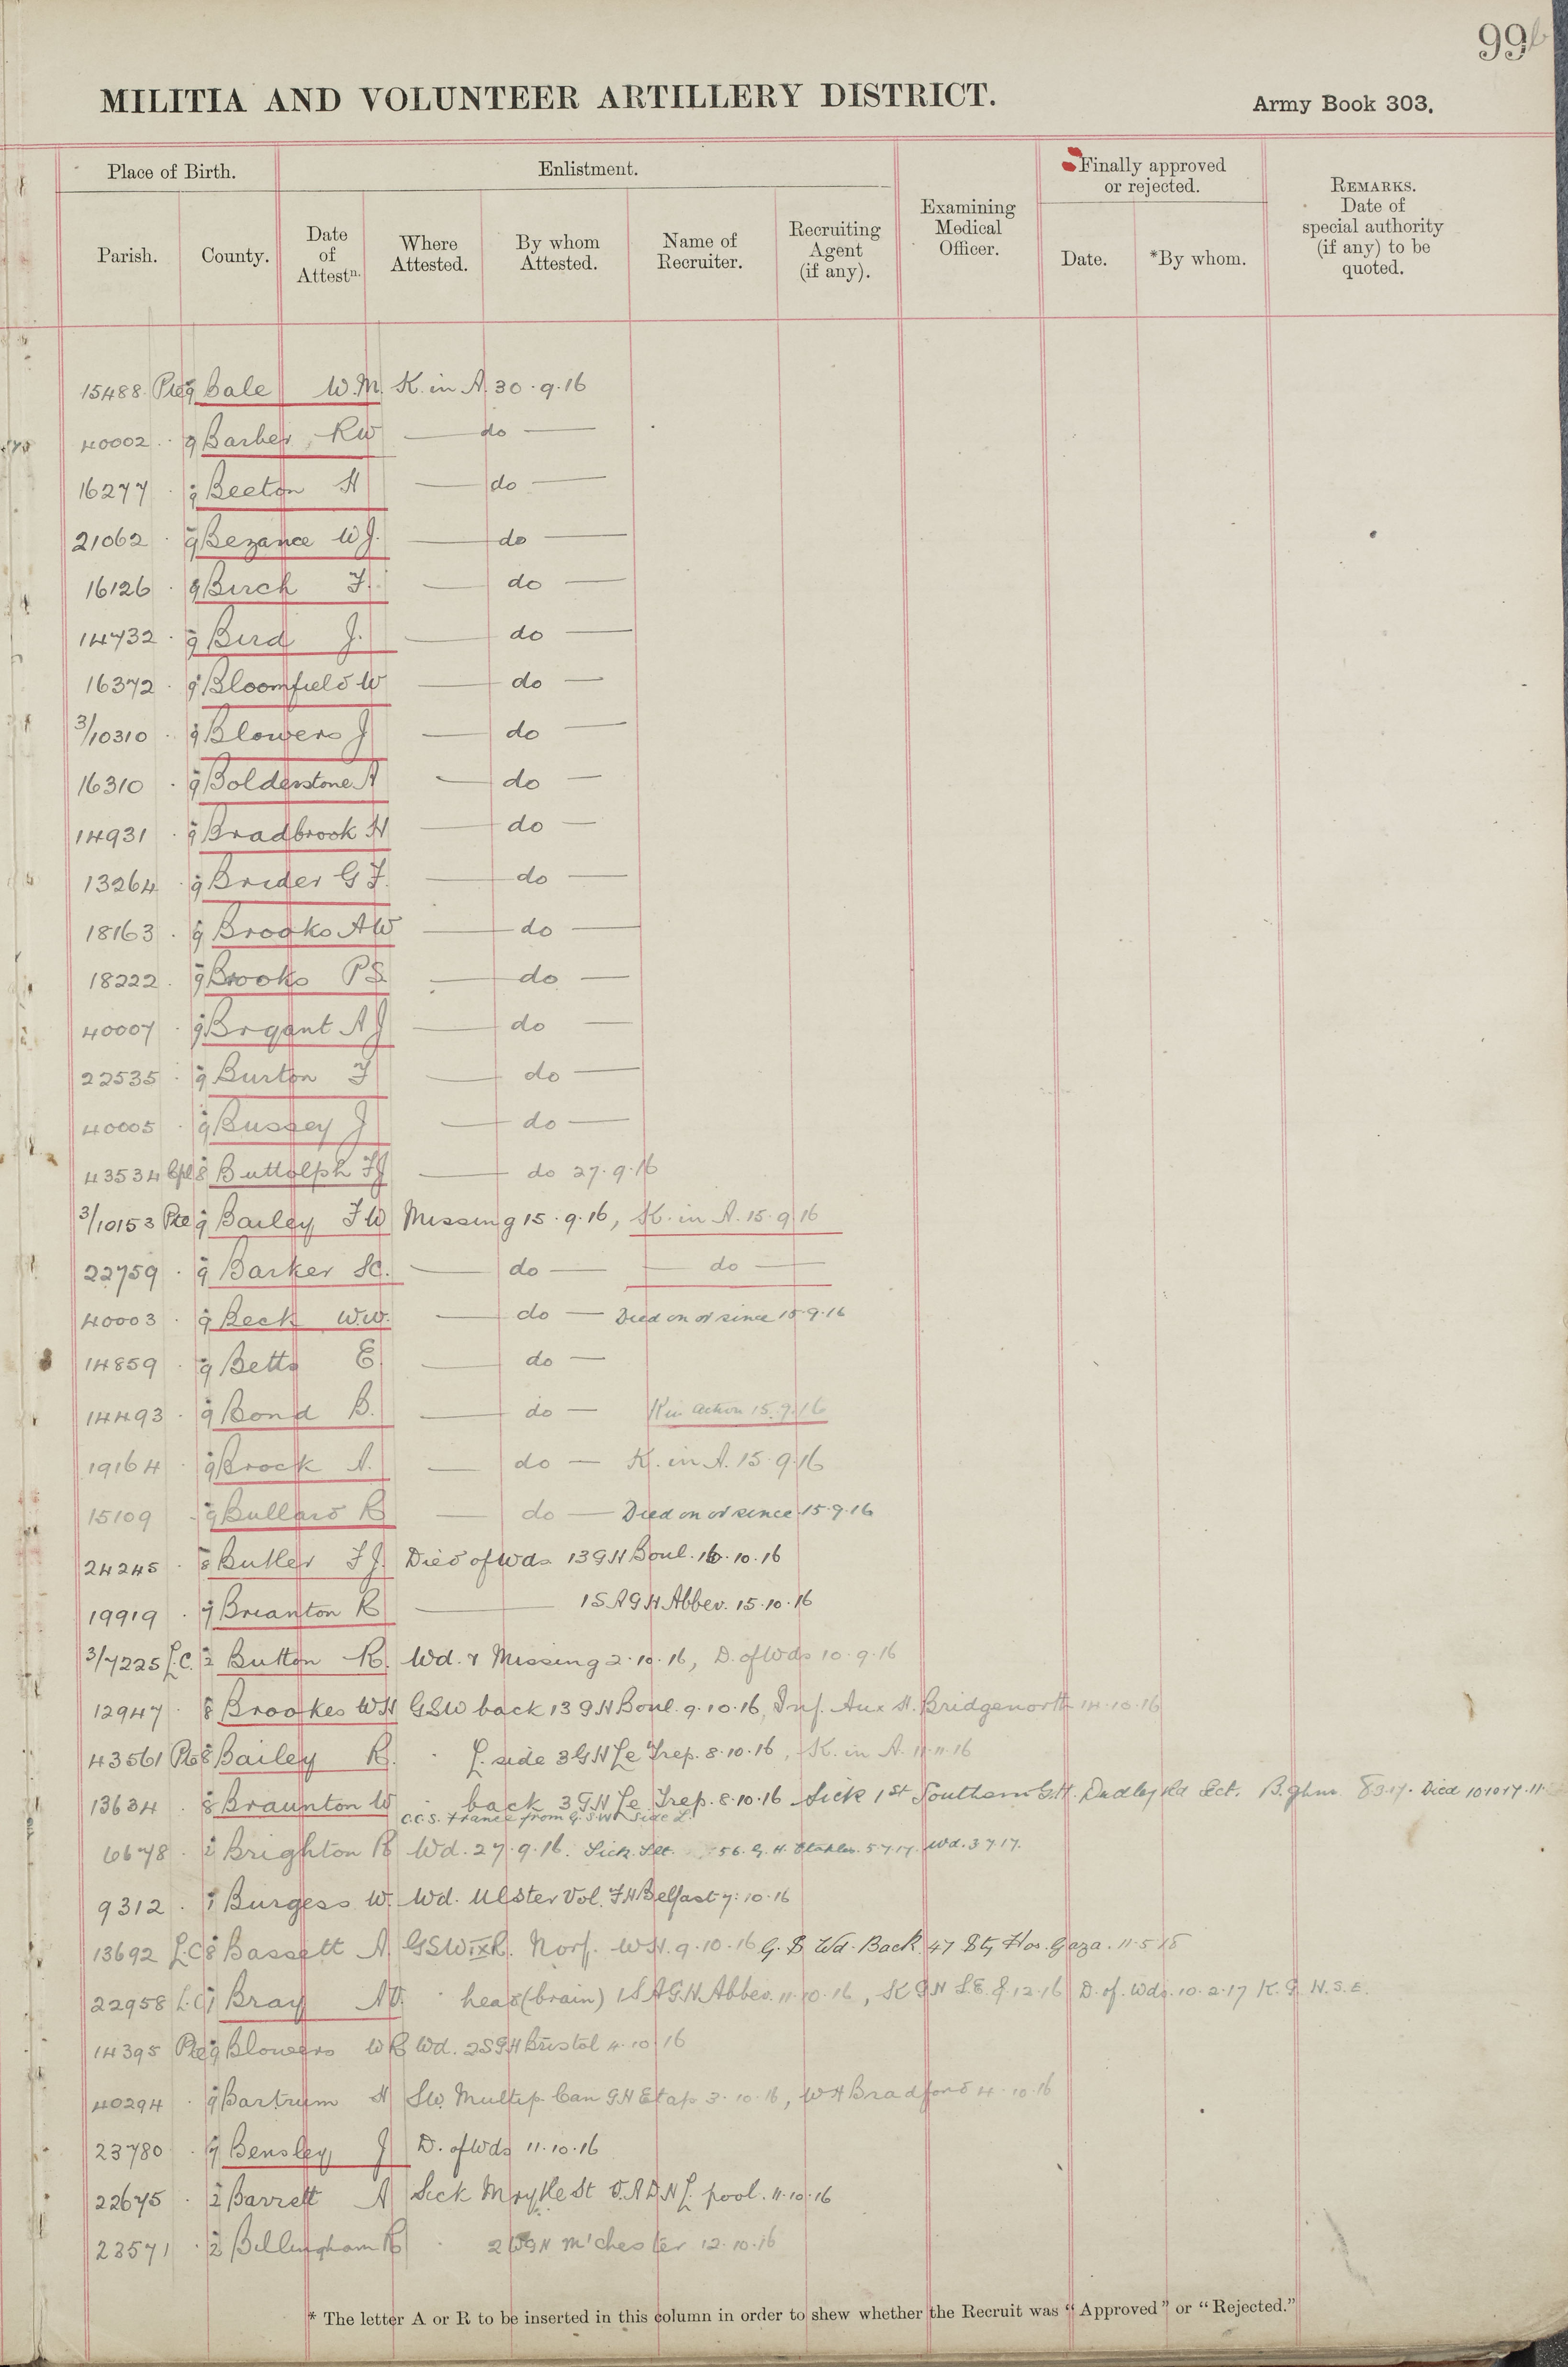 99b
MILITIA AND VOLUNTEER ARTILLERY DISTRICT.
Army Book 303.
Place of Birth.
Enlistment.
Examining Medical Officer.
Finally approved or rejected.
REMARKS. Date of special authority (if any) to be quoted.
Parish.
County.
Date of Attestn.
Where Attested.
By whom Attested.
Name of Recruiter.
Recruiting Agent (if any).
Date.
*By whom.
15488 Pte 9 Bale W.M. K. in A. 30.9.16
40002 9 Barber RW do
16277 9 Beeton H do
21062 9 Bezance W.J. do
16126 9 Birch F. do
14732 9 Bird J. do
16372 9 Bloomfield W do
3/10310 9 Blowers J do
16310 9 Bolderstone A do
14931 9 Bradbrook H do
13264 9 Brider G F. do
18163 9 Brooks AW do
18222 9 Brooks PS do
40007 9 Bryant A J do
22535 9 Burton F do
40005 9 Bussey J do
43534 Cpl 8 Buttolph FJ do 27.9.16
3/10153 Pte 9 Bailey FW Missing 15.9.16, K. in A. 15.9.16
22759 9 Barker Sc. do do
40003 9 Beck W.W. do Died on or since 15.9.16
14859 9 Betts E. do
14493 9 Bond B. do K in action 15.9.16
19164 9 Brock A. do K. in A. 15.9.16
15109 9 Bullard R do Died on or since 15.9.16
24245 8 Butler F J. Died of Wds 13 G H Boul. 16.10.16
19919 7 Brianton R 1 S A G H Abbev. 15.10.16
3/7225 L.C. 2 Button R. Wd. & Missing 2.10.16, D. of Wds 10.9.16
12947 8 Brookes WH GSW back 13 G.H Boul. 9.10.16, Inf. Aux H. Bridgenorth 14.10.16
43561 Pte 8 Bailey R. " L. side 3 G H Le Trep. 8.10.16, K. in A. 11.11.16
13634 8 Braunton W " back 3 G H Le Trep. 8.10.16 Sick 1st Southern G.H. Dudley Rd Sect. B.ghm 8.3.17. Died 10.10.17
C.C.S. France from G.S.W. Side L.
6678 2 Brighton R Wd. 27.9.16. Sick Slt. 56. G. H. Etaples. 5.7.17. Wd. 3.7.17.
9312 1 Burgess W. Wd. Ulster Vol. F H Belfast 7.10.16
13692 L.C 8 Bassett A GSW R. Norf. W H. 9.10.16 G. S Wd. Back 47 Sty Hos. Gaza. 11.5.18
22958 L.C 7 Bray " head (brain) 1 S A G.H. Abbev. 11.10.16, K G H S.E. 8.12.16 D. of. Wds. 10.2.17 K. G. H. S. E.
14395 Pte 9 Blowers W R Wd. 2 S G H Bristol 4.10.16
40294 9 Bartrum H SW. Multip. Can G H Etap 3.10.16, W H Bradford 4.10.16
23780 7 Bensley J D. of Wds 11.10.16
22675 2 Barrett A Sick Myrtle St L. pool. 11.10.16
23571 2 Billingham R " M'chester 12.10.16
* The letter A or R to be inserted in this column in order to shew whether the Recruit was "Approved" or "Rejected."